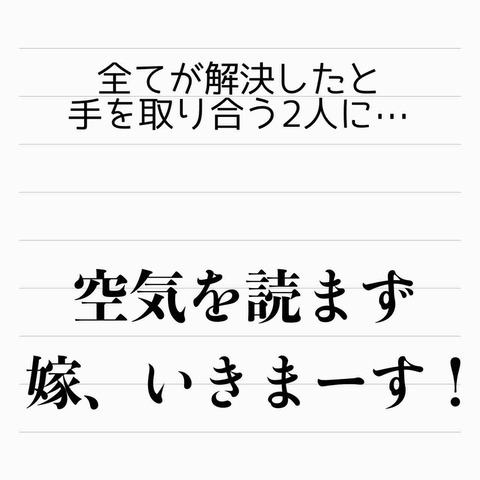 全てが解決したと
手を取り合う2人に…
空気を読まず
嫁、いきまーす!